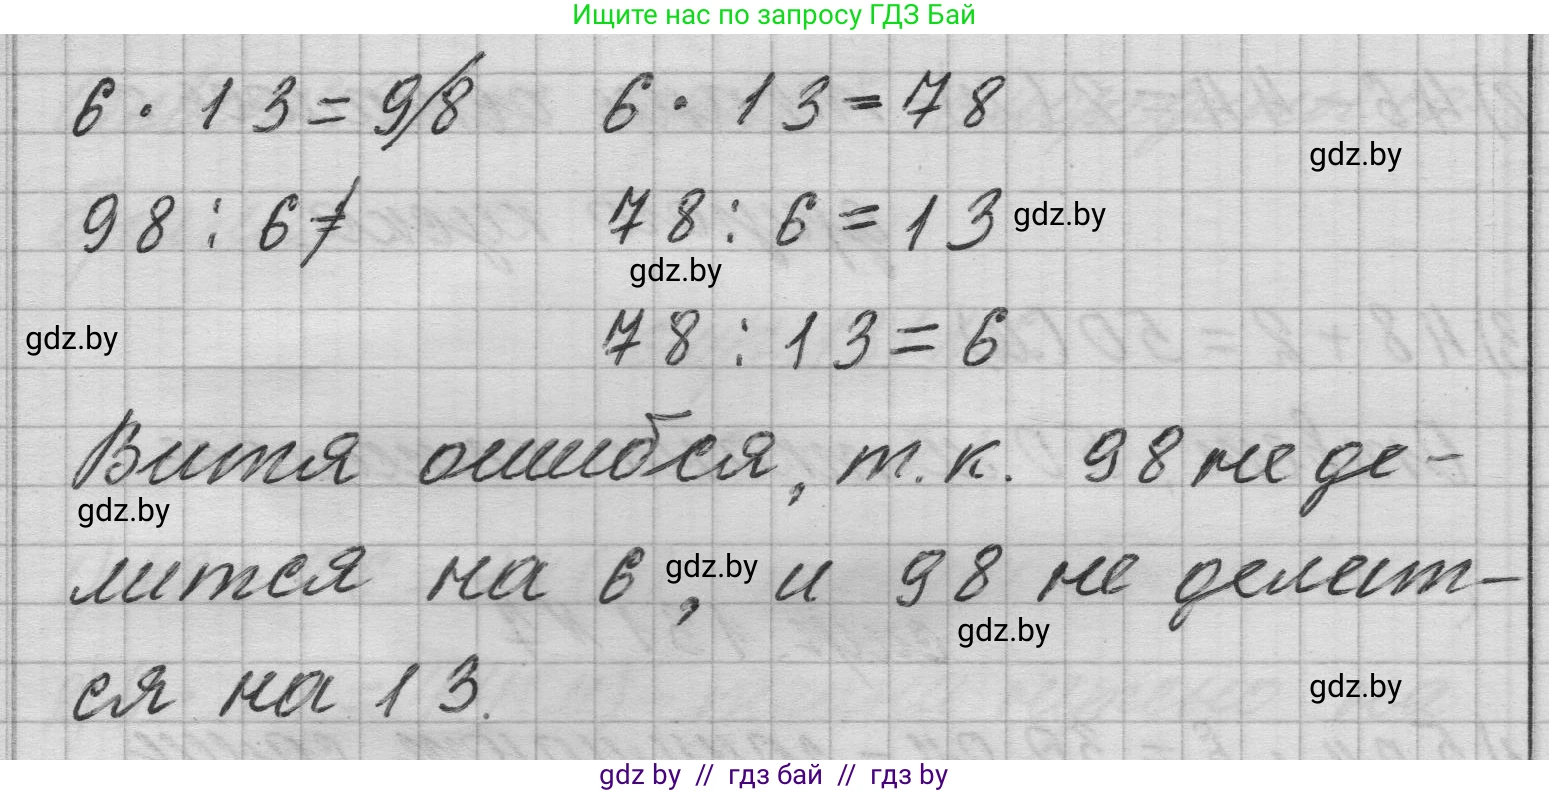 Ищите нас по запросу ГДЗ Бай
6 · 13 = 98 6 · 13 = 78
gdz.by
98 : 6 ≠ 78 : 6 = 13 gdz.by
gdz.by
gdz.by 78 : 13 = 6
Витя ошибся, т.к. 98 не де-
gdz.by
лится на 6, gdz.by и 98 не делит-
gdz.by
ся на 13. gdz.by
gdz by // гдз бай // гдз by